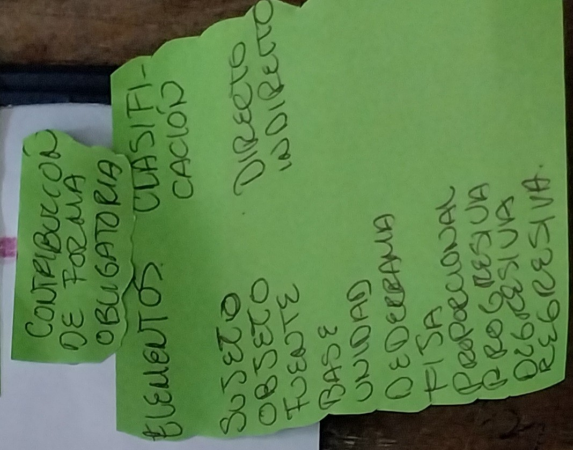 CONTRIBUCIÓN
DE FORMA
OBLIGATORIA
ELEMENTOS.
SUJETO
OBJETO
FUENTE
BASE
UNIDAD
DE DERRAMA
FIJA
PROPORCIONAL
PROGRESIVA
DEGRESIVA
REGRESIVA.
CLASIFI-
CACIÓN
DIRECTO
INDIRECTO